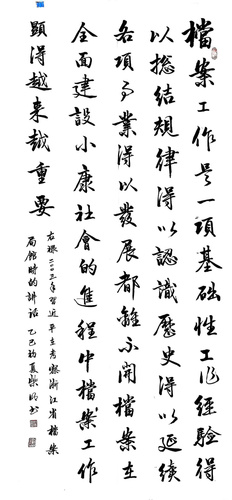 檔案工作是一項基础性工作經驗得
以總結規律得以認識歷史得以延續
各項事業得以發展都離不開檔案在
全面建設小康社會的進程中檔案工作
顯得越来越重要
右錄二〇〇三年習近平在考察浙江省檔案
局館時的講話 乙巳初夏